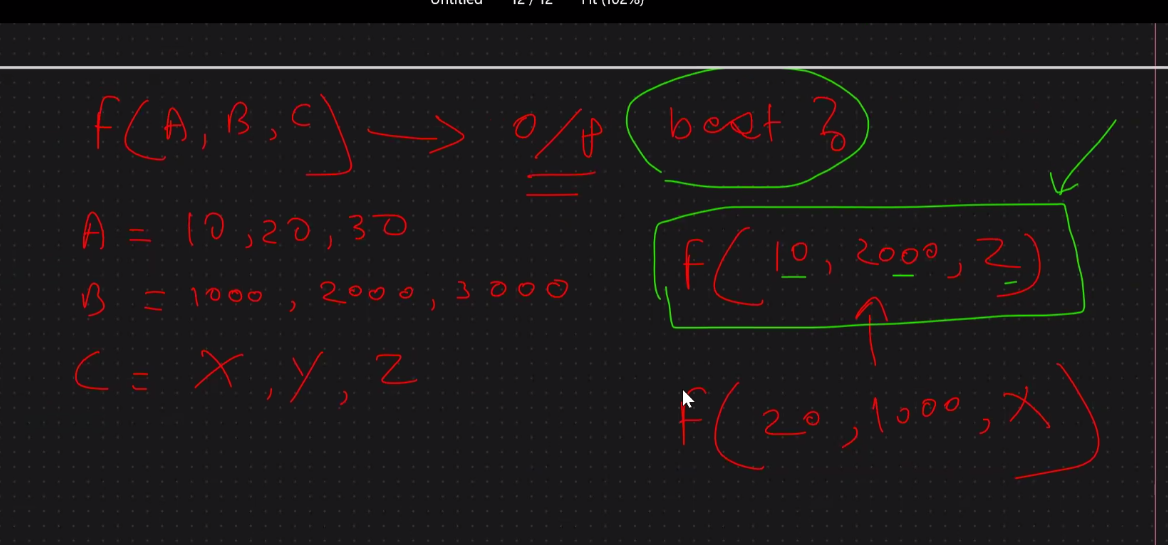 Untitled 12 / 12 Fit (102%)
f(A, B, C) → O/p best ?
A = 10, 20, 30
B = 1000, 2000, 3000
C = X, Y, Z
f(10, 2000, Z)
f(20, 1000, X)